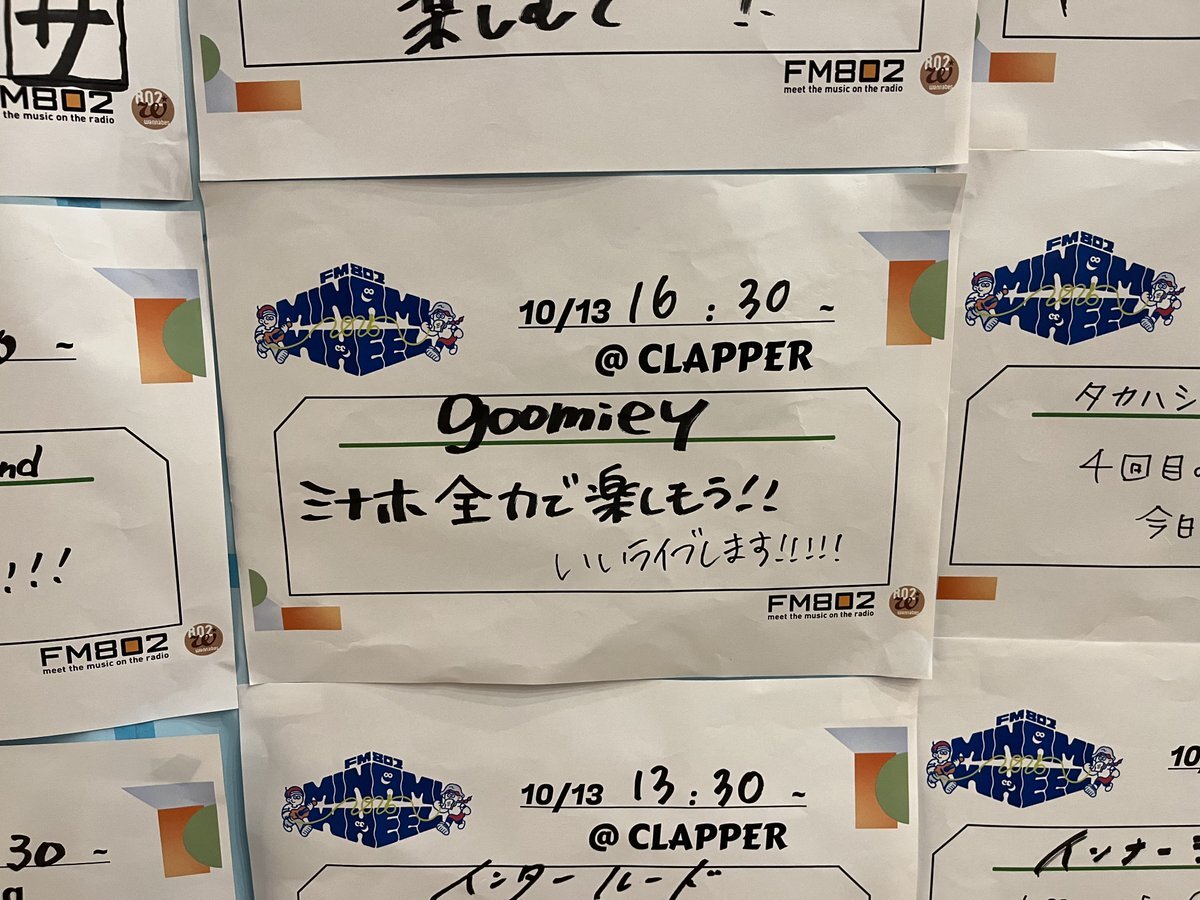 楽しむぞ!!
サ
FM802
meet the music on the radio
FM802
the music on the radio
FM802
MINAMI WHEEL
2026
10/13 16:30~
@ CLAPPER
goomiey
ミナホ 全力で楽しもう!!
いいライブします!!!!!
FM802
meet the music on the radio
~
nd
!!!
FM802
meet the music on the radio
FM802
MINAMI WHEEL
2026
タカハシ
4回目の
今日
FM802
MINAMI WHEEL
2026
10/13 13:30~
@ CLAPPER
インタールード
30~
FM802
MINAMI WHEEL
2026
10
インナー